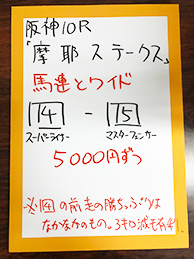 阪神10R
「摩耶ステークス」
馬連とワイド
14 - 15
スーパーライナー マスターフェンサー
5000円ずつ
※14の前走の勝ちっぷりは
なかなかのもの。3キロ減も有利!